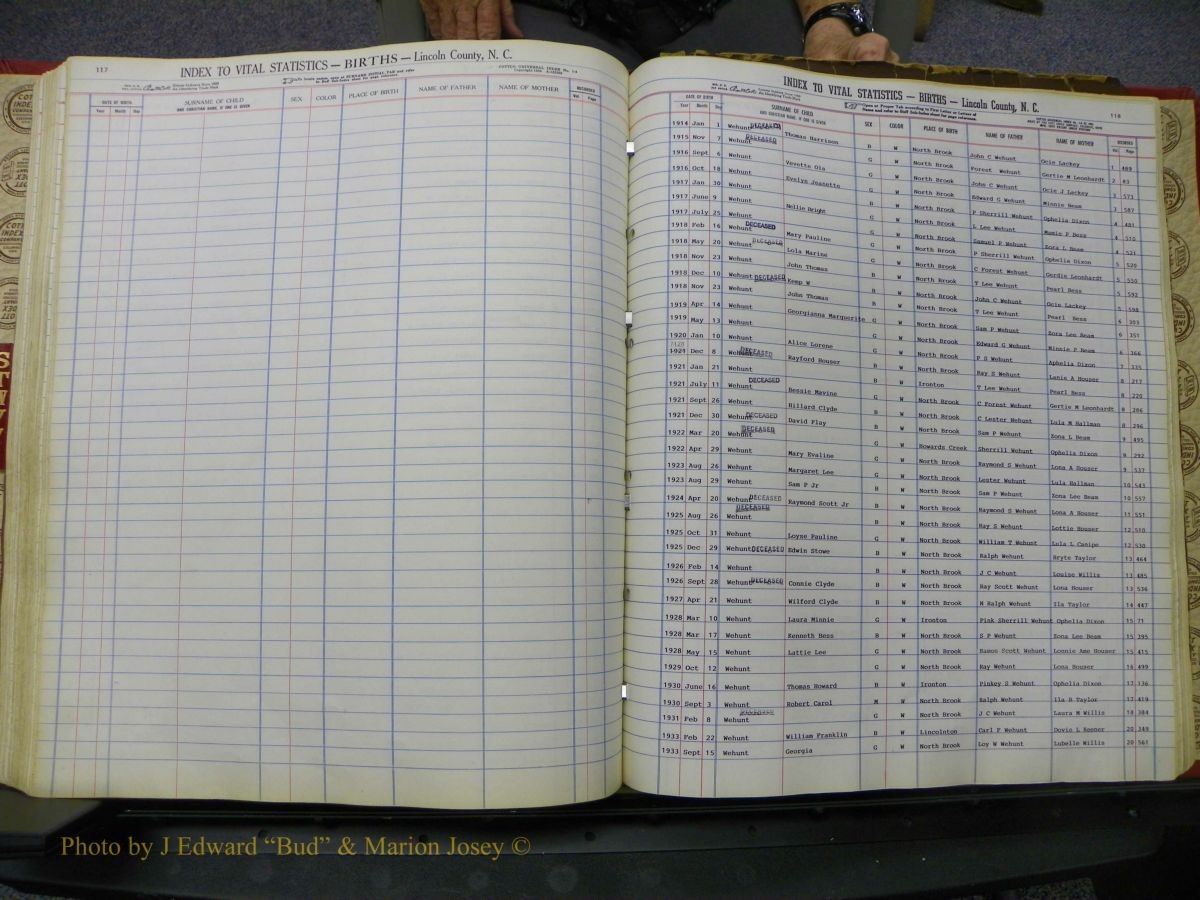 117
INDEX TO VITAL STATISTICS — BIRTHS — Lincoln County, N. C.
DATE OF BIRTH
Year Month Day
SURNAME OF CHILD
AND CHRISTIAN NAME, IF ONE IS GIVEN
SEX
COLOR
PLACE OF BIRTH
NAME OF FATHER
NAME OF MOTHER
RECORDED
Vol. Page
INDEX TO VITAL STATISTICS — BIRTHS — Lincoln County, N. C.
118
DATE OF BIRTH
Year Month Day
SURNAME OF CHILD
AND CHRISTIAN NAME, IF ONE IS GIVEN
SEX
COLOR
PLACE OF BIRTH
NAME OF FATHER
NAME OF MOTHER
RECORDED
Vol. Page
1914 Jan 1 Wehunt DECEASED Thomas Harrison B W North Brook John C Wehunt Ocie Lackey 1 489
1915 Nov 7 Wehunt DECEASED G W North Brook Forest Wehunt Gertie M Leonhardt 2 83
1916 Sept 6 Wehunt Vevette Ola G W North Brook John C Wehunt Ocie J Lackey 3 573
1916 Oct 18 Wehunt Evelyn Jeanette G W North Brook Edward G Wehunt Minnie Beam 3 587
1917 Jan 30 Wehunt B W North Brook P Sherrill Wehunt Ophelia Dixon 4 481
1917 June 9 Wehunt Nellie Bright G W North Brook L Lee Wehunt Mamie P Bess 4 510
1917 July 25 Wehunt G W North Brook Samuel P Wehunt Zora L Beam 4 521
1918 Feb 16 Wehunt DECEASED Mary Pauline G W North Brook P Sherrill Wehunt Ophelia Dixon 5 520
1918 May 20 Wehunt DECEASED Lola Marine G W North Brook C Forest Wehunt Gurdie Leonhardt 5 550
1918 Nov 23 Wehunt John Thomas B W North Brook T Lee Wehunt Pearl Bess 5 592
1918 Dec 10 Wehunt DECEASED Kemp W B W North Brook John C Wehunt Ocie Lackey 5 598
1918 Nov 23 Wehunt John Thomas B W North Brook T Lee Wehunt Pearl Bess 6 303
1919 Apr 14 Wehunt Georgianna Marguerite G W North Brook Sam P Wehunt Zora Lee Beam 6 351
1919 May 13 Wehunt G W North Brook Edward G Wehunt Minnie P Beam 6 366
1920 Jan 10 Wehunt Alice Lorene G W North Brook P S Wehunt Aphelia Dixon 7 335
1921 Dec 8 Wehunt DECEASED Rayford Houser B W North Brook Ray S Wehunt Lanie A Houser 8 217
1921 Jan 21 Wehunt B W Ironton T Lee Wehunt Pearl Bess 8 220
1921 July 11 Wehunt DECEASED Bessie Mavine G W North Brook C Forest Wehunt Gertie M Leonhardt 8 286
1921 Sept 26 Wehunt Hillard Clyde B W North Brook C Lester Wehunt Lula M Hallman 8 296
1921 Dec 30 Wehunt DECEASED David Flay B W North Brook Sam P Wehunt Zona L Beam 9 495
1922 Mar 20 Wehunt DECEASED G W Howards Creek Sherrill Wehunt Ophelia Dixon 9 292
1922 Apr 29 Wehunt Mary Evaline G W North Brook Raymond S Wehunt Lona A Houser 9 537
1923 Aug 26 Wehunt Margaret Lee G W North Brook Lester Wehunt Lula Hallman 10 543
1923 Aug 29 Wehunt Sam P Jr B W North Brook Sam P Wehunt Zona Lee Beam 10 557
1924 Apr 20 Wehunt DECEASED Raymond Scott Jr B W North Brook Raymond S Wehunt Lona A Houser 11 551
1925 Aug 26 Wehunt DECEASED B W North Brook Ray S Wehunt Lottie Houser 12 510
1925 Oct 31 Wehunt Loyse Pauline G W North Brook William T Wehunt Lula L Canipe 12 530
1925 Dec 29 Wehunt DECEASED Edwin Stowe B W North Brook Ralph Wehunt Bryte Taylor 13 464
1926 Feb 14 Wehunt B W North Brook J C Wehunt Louise Willis 13 485
1926 Sept 28 Wehunt DECEASED Connie Clyde B W North Brook Ray Scott Wehunt Lona Houser 13 536
1927 Apr 21 Wehunt Wilford Clyde B W North Brook N Ralph Wehunt Ila Taylor 14 447
1928 Mar 10 Wehunt Laura Minnie G W Ironton Pink Sherrill Wehunt Ophelia Dixon 15 71
1928 Mar 17 Wehunt Kenneth Bess B W North Brook S P Wehunt Zona Lee Beam 15 395
1928 May 15 Wehunt Lattie Lee G W North Brook Ramos Scott Wehunt Lonnie Ame Houser 15 415
1929 Oct 12 Wehunt G W North Brook Ray Wehunt Lona Houser 16 499
1930 June 16 Wehunt Thomas Howard B W Ironton Pinkey S Wehunt Ophelia Dixon 17 136
1930 Sept 3 Wehunt Robert Carol M W North Brook Ralph Wehunt Ila B Taylor 17 419
1931 Feb 8 Wehunt G W North Brook J C Wehunt Laura M Willis 18 384
1933 Feb 22 Wehunt William Franklin B W Lincolnton Carl P Wehunt Dovie L Keener 20 349
1933 Sept 15 Wehunt Georgia G W North Brook Loy W Wehunt Lubelle Willis 20 561
Photo by J Edward “Bud” & Marion Josey ©